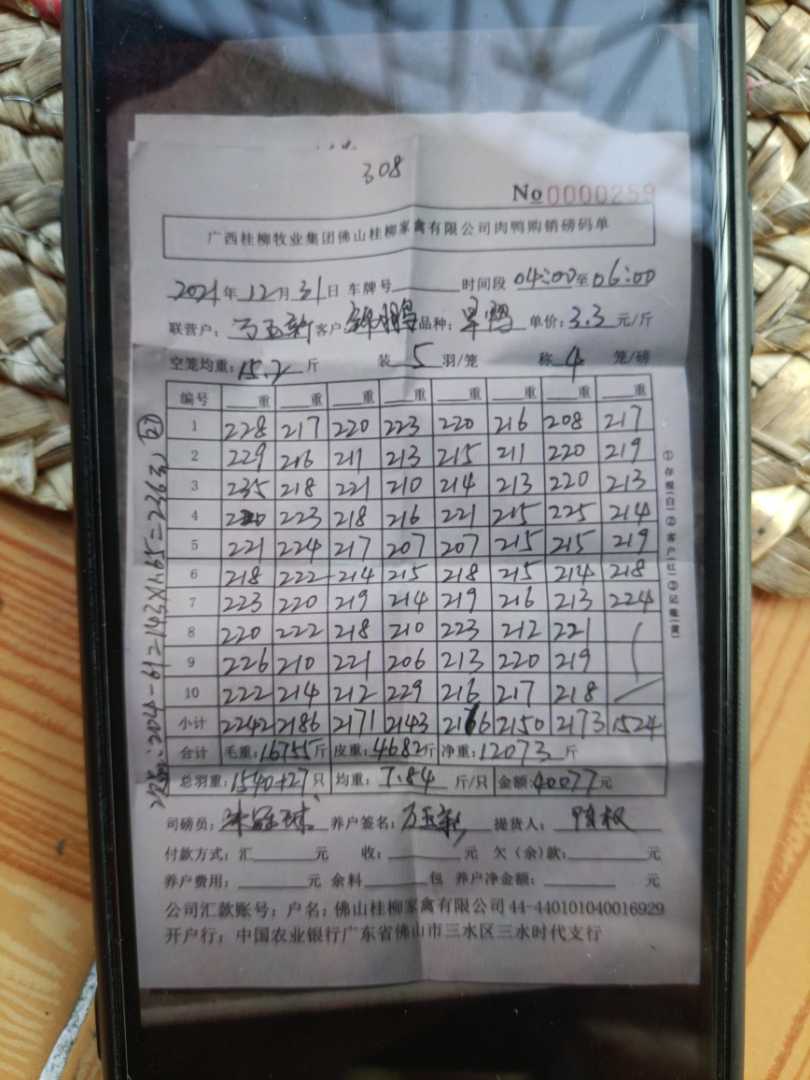 308
No 0000259
广西桂柳牧业集团佛山桂柳家禽有限公司肉鸭购销磅码单
2021年12月31日 车牌号 时间段 04:00至06:00
联营户: 万玉新 客户 品种: 单价: 3.3 元/斤
空笼均重: 15.2 斤 装 5 羽/笼 称 4 笼/磅
编号 重 重 重 重 重 重 重 重
1 228 217 220 223 220 216 208 217
2 229 216 211 213 215 211 220 219
3 235 218 221 210 214 213 220 213
4 220 223 218 216 221 215 225 214
5 221 224 217 207 207 215 215 219
6 218 222 214 215 218 215 214 218
7 223 220 219 214 219 216 213 224
8 220 222 218 210 223 212 221
9 226 210 221 206 213 220 219
10 222 214 212 229 216 217 218
小计 2242 2186 2171 2143 2166 2150 2173 1524
合计 毛重: 16755斤 皮重: 4682斤 净重: 12073斤
总羽重: 1540+27只 均重: 7.84 斤/只 金额: 40077元
司磅员: 养户签名: 万玉新 提货人:
付款方式: 汇 元 收: 元 欠(余)款: 元
养户费用: 元 余料 包 养户净金额: 元
公司汇款账号: 户名: 佛山桂柳家禽有限公司 44-440101040016929
开户行: 中国农业银行广东省佛山市三水区三水时代支行
①存根(白)②客户(红)③记账(黄)
204-61=143×1.65=236元 27